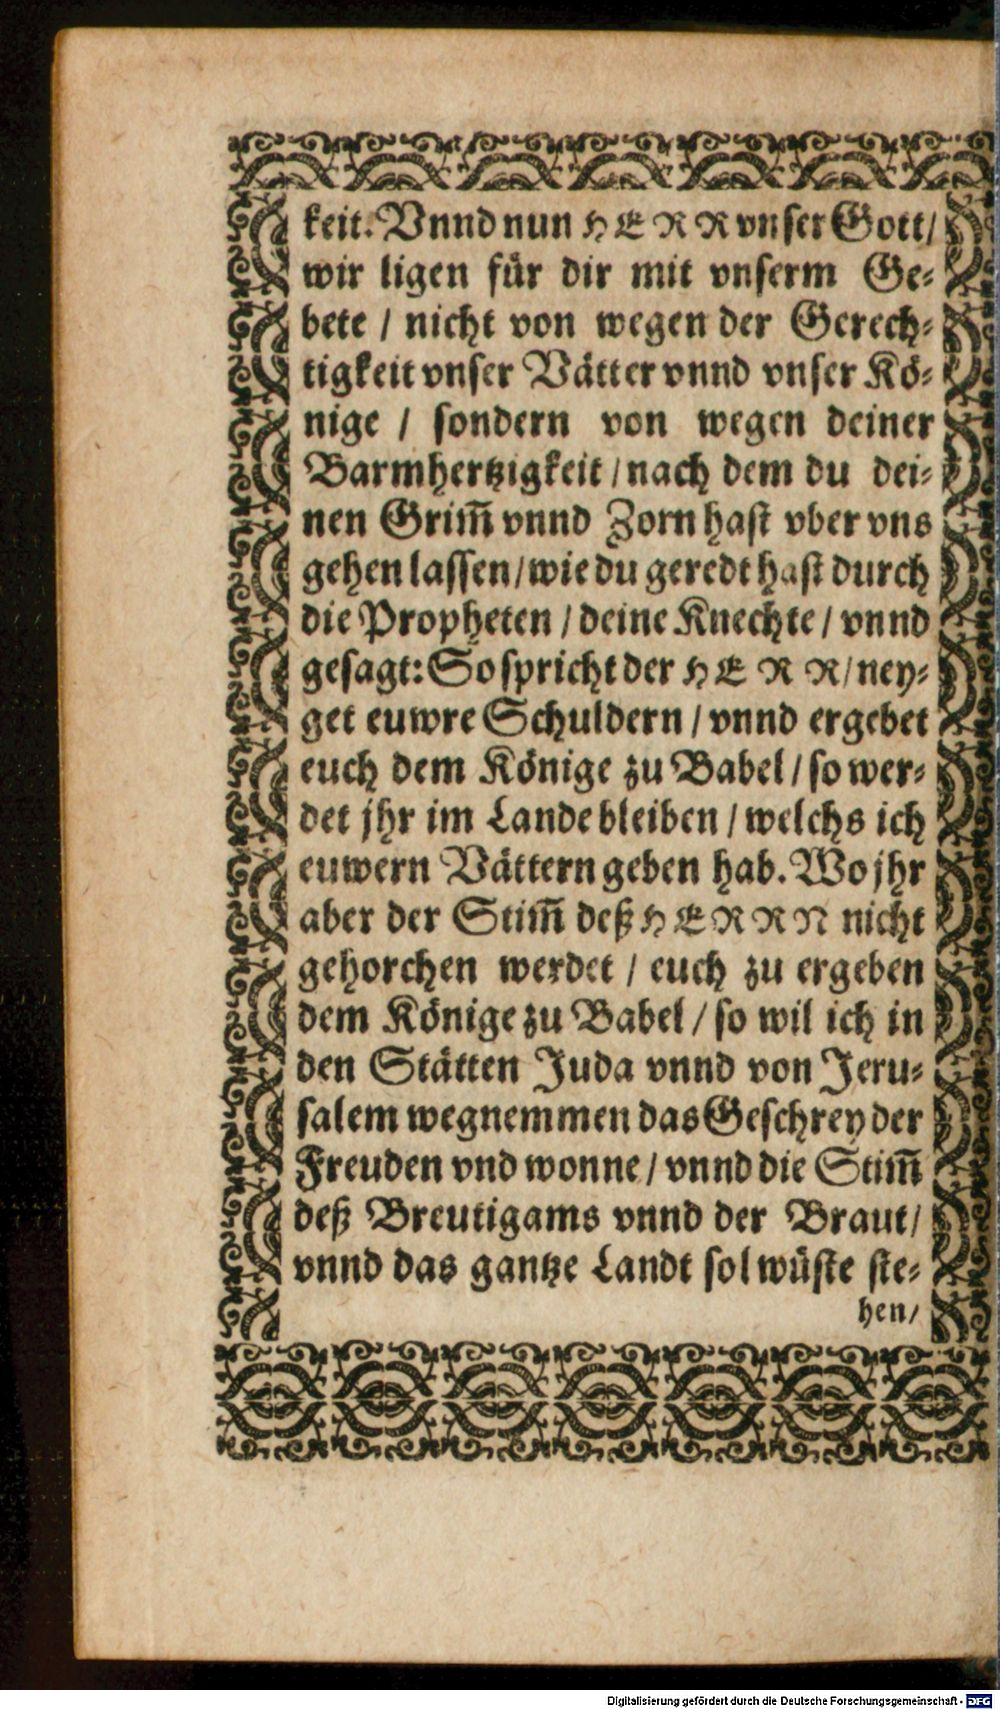 keit. Vnnd nun HERR vnser Gott/
wir ligen für dir mit vnserm Ge-
bete / nicht von wegen der Gerech-
tigkeit vnser Vätter vnnd vnser Kö-
nige / sondern von wegen deiner
Barmhertzigkeit / nach dem du dei-
nen Grim̃ vnnd Zorn hast vber vns
gehen lassen / wie du geredt hast durch
die Propheten / deine Knechte / vnnd
gesagt: So spricht der HERR / ney-
get euwre Schuldern / vnnd ergebet
euch dem Könige zu Babel / so wer-
det jhr im Lande bleiben / welchs ich
euwern Vättern geben hab. Wo jhr
aber der Stim̃ deß HERRN nicht
gehorchen werdet / euch zu ergeben
dem Könige zu Babel / so wil ich in
den Stätten Juda vnnd von Jeru-
salem wegnemmen das Geschrey der
Freuden vnd wonne / vnnd die Stim̃
deß Breutigams vnnd der Braut /
vnnd das gantze Landt sol wüste ste-
hen /
Digitalisierung gefördert durch die Deutsche Forschungsgemeinschaft - DFG